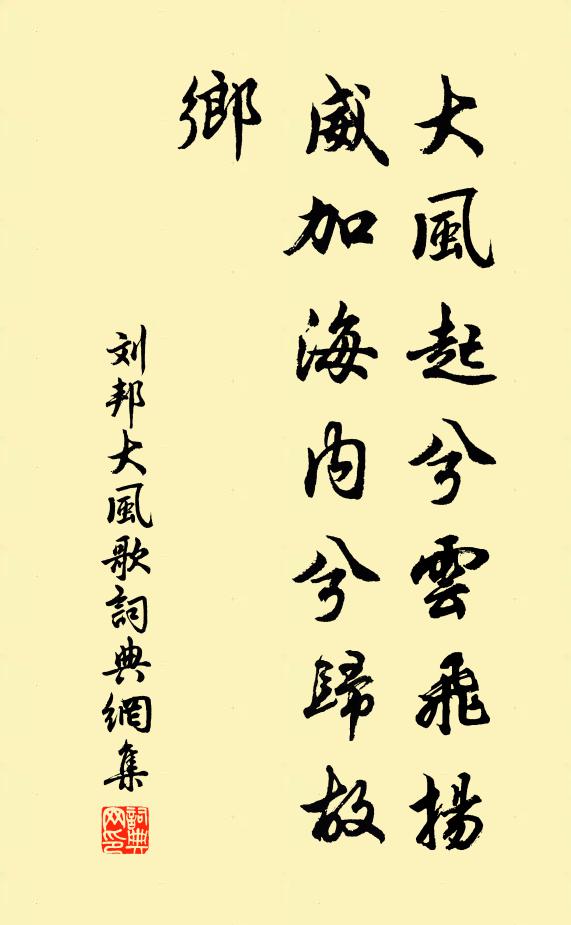 大風起兮雲飛揚
威加海内兮歸故
鄉
刘邦大風歌詞典網集
詞典网印